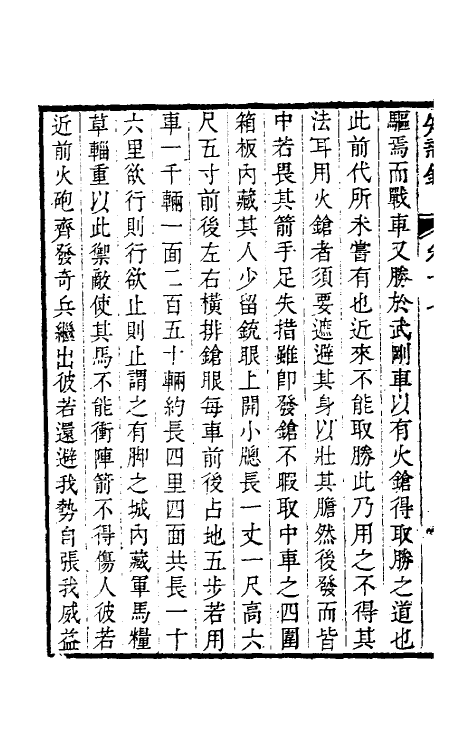 驅焉而戰車又勝於武剛車以有火鎗得取勝之道也
此前代所未嘗有也近來不能取勝此乃用之不得其
法耳用火鎗者須要遮避其身以壯其膽然後發而皆
中若畏其箭手足失措雖卽發鎗不暇取中車之四圍
箱板內藏其人少留銃眼上開小牕長一丈一尺高六
尺五寸前後左右橫排鎗眼每車前後占地五步若用
車一千輛一面二百五十輛約長四里四面共長一十
六里欲行則行欲止則止謂之有脚之城內藏軍馬糧
草輜重以此禦敵使其馬不能衝陣箭不得傷人彼若
近前火砲齊發奇兵繼出彼若還避我勢自張我威益